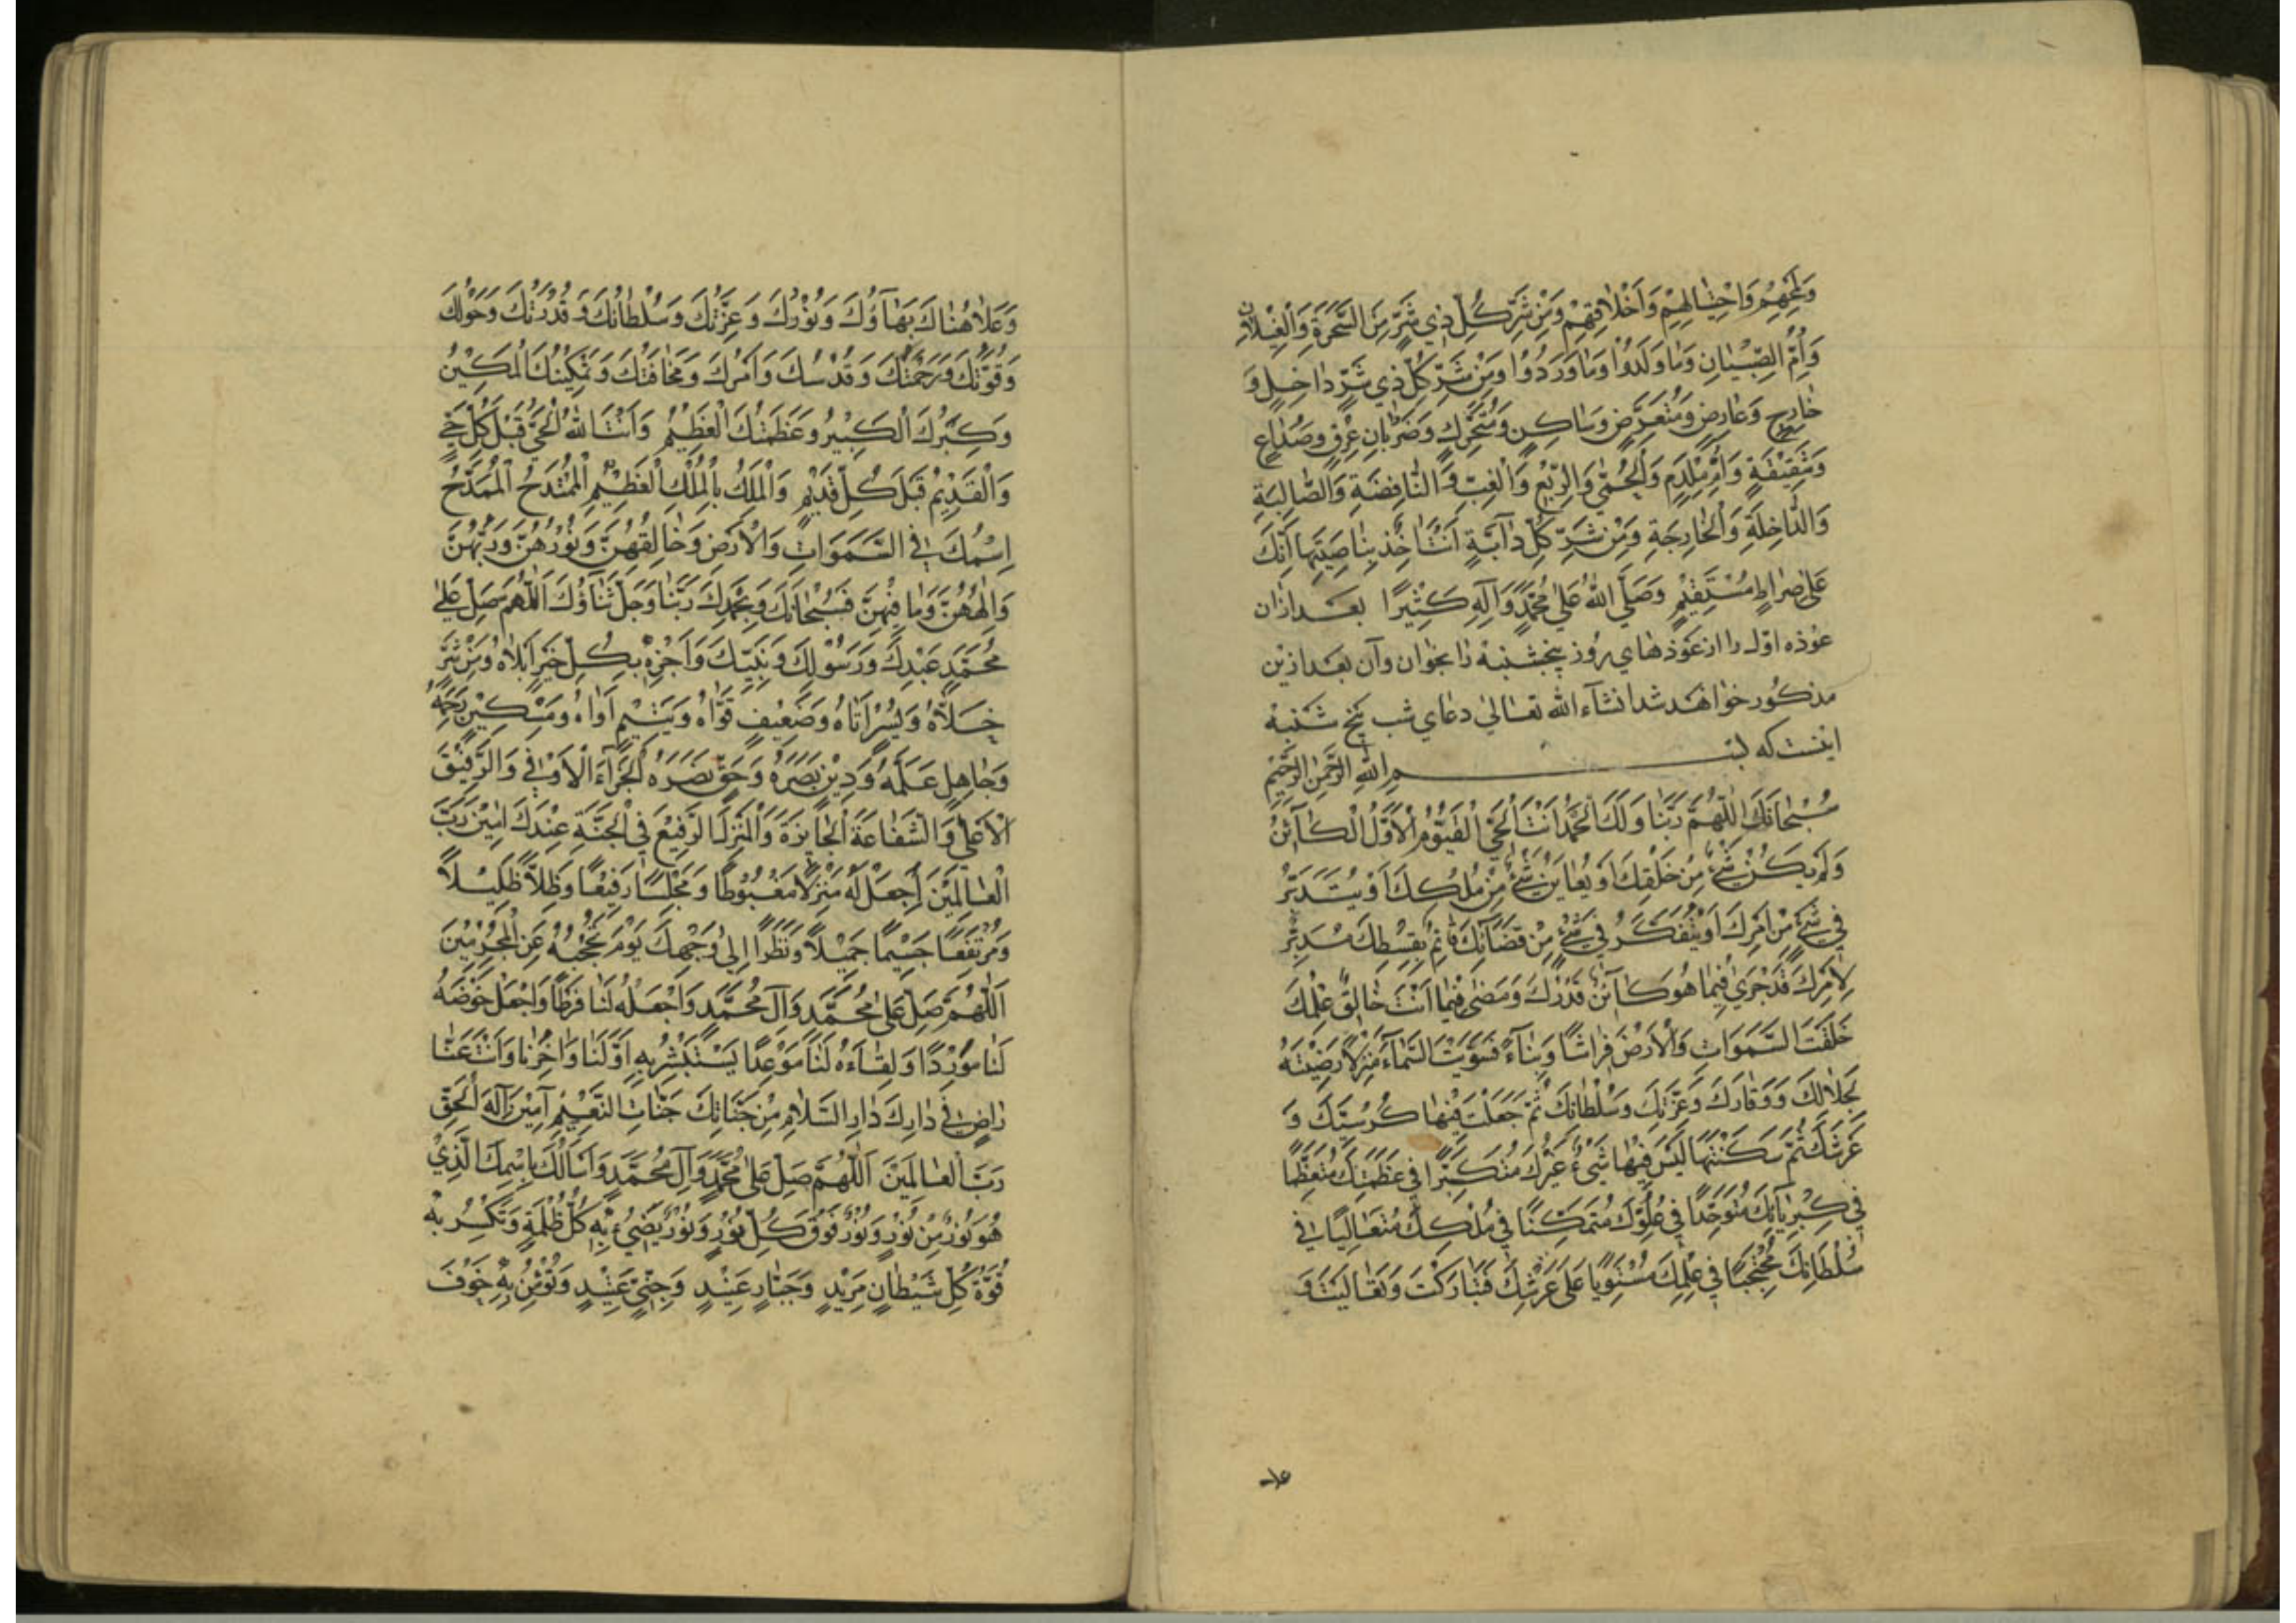 وَلَمْحِهِمْ وَاحْتِيَالِهِمْ وَاَخْلَافِهِمْ وَمِنْ شَرِّ كُلِّ ذِي شَرٍّ مِنَ السَّحَرَةِ وَالْغِيلَانِ
وَاُمِّ الصِّبْيَانِ وَمَا وَلَدُوْا وَمَا وَرَدُوْا وَمِنْ شَرِّ كُلِّ ذِي شَرٍّ دَاخِلٍ وَ
خَارِجٍ وَعَارِضٍ وَمُتَعَرِّضٍ وَسَاكِنٍ وَمُتَحَرِّكٍ وَضَرَبَانِ عِرْقٍ وَصُدَاعٍ
وَشَقِيْقَةٍ وَاُمِّ مِلْدَمٍ وَالْحُمّٰى وَالرِّبْعِ وَالْغِبِّ وَالنَّافِضَةِ وَالصَّالِبَةِ
وَالدَّاخِلَةِ وَالْخَارِجَةِ وَمِنْ شَرِّ كُلِّ دَآبَّةٍ اَنْتَ اٰخِذٌ بِنَاصِيَتِهَا اِنَّكَ
عَلٰى صِرَاطٍ مُسْتَقِيْمٍ وَصَلَّى اللّٰهُ عَلٰى مُحَمَّدٍ وَآلِهِ كَثِيْرًا بعد ازان
عوذه اول را از عوذهاى روز پنجشنبه را بخوان وآن بعد ازين
مذكور خواهد شد انشاء الله تعالى دعاى شب پنج شنبه
اينست كه بسم الله الرحمن الرحيم
سُبْحَانَكَ اللّٰهُمَّ رَبَّنَا وَلَكَ الْحَمْدُ اَنْتَ الْحَيُّ الْقَيُّوْمُ الْاَوَّلُ الْكَآئِنُ
وَلَمْ يَكُنْ شَيْءٌ مِنْ خَلْقِكَ اَوْ يُعَايِنُ شَيْءٌ مِنْ مُلْكِكَ اَوْ يُتَدَبَّرُ
فِي شَيْءٍ مِنْ اَمْرِكَ اَوْ يَتَفَكَّرُ فِي شَيْءٍ مِنْ قَضَآئِكَ قَائِمٌ بِقِسْطِكَ مُدَبِّرٌ
لِاَمْرِكَ قَدْ جَرٰى فِيْمَا هُوَ كَآئِنٌ قَدَرُكَ وَمَضٰى فِيْمَا اَنْتَ خَالِقٌ عِلْمُكَ
خَلَقْتَ السَّمَوَاتِ وَالْاَرْضَ فِرَاشًا وَبِنَآءً فَسَوَّيْتَ السَّمَآءَ مَنْزِلًا رَضِيْتَهُ
بِجَلَالِكَ وَوَقَارِكَ وَعِزَّتِكَ وَسُلْطَانِكَ ثُمَّ جَعَلْتَ فِيْهَا كُرْسِيَّكَ وَ
عَرْشَكَ ثُمَّ سَكَنْتَهَا لَيْسَ فِيْهَا شَيْءٌ غَيْرُكَ مُتَكَبِّرًا فِي عَظَمَتِكَ مُتَعَظِّمًا
فِي كِبْرِيَآئِكَ مُتَوَحِّدًا فِي عُلُوِّكَ مُتَمَكِّنًا فِي مُلْكِكَ مُتَعَالِيًا فِي
سُلْطَانِكَ مُحْتَجِبًا فِي عِلْمِكَ مُسْتَوِيًا عَلٰى عَرْشِكَ فَتَبَارَكْتَ وَتَعَالَيْتَ وَ
وَعَلَا هُنَاكَ بَهَآؤُكَ وَنُوْرُكَ وَعِزَّتُكَ وَسُلْطَانُكَ وَقُدْرَتُكَ وَحَوْلُكَ
وَقُوَّتُكَ وَرَحْمَتُكَ وَقُدْسُكَ وَاَمْرُكَ وَمَخَافَتُكَ وَتَمْكِيْنُكَ الْمَكِيْنُ
وَكِبْرُكَ الْكَبِيْرُ وَعَظَمَتُكَ الْعَظِيْمُ وَاَنْتَ اللّٰهُ الْحَيُّ قَبْلَ كُلِّ حَيٍّ
وَالْقَدِيْمُ قَبْلَ كُلِّ قَدِيْمٍ وَالْمَلِكُ بِالْمُلْكِ الْعَظِيْمِ الْمُمْتَدَحُ الْمُمَدَّحُ
اِسْمُكَ فِي السَّمَوَاتِ وَالْاَرْضِ وَخَالِقُهُنَّ وَنُوْرُهُنَّ وَرَبُّهُنَّ
وَاِلٰهُهُنَّ وَمَا فِيْهِنَّ فَسُبْحَانَكَ وَبِحَمْدِكَ رَبَّنَا وَجَلَّ ثَنَآؤُكَ اَللّٰهُمَّ صَلِّ عَلٰى
مُحَمَّدٍ عَبْدِكَ وَرَسُوْلِكَ وَنَبِيِّكَ وَاَجْزِهِ بِكُلِّ خَيْرٍ اَبْلَاهُ وَمِنْ شَرٍّ
خَلَّاهُ وَيُسْرٍ اَتَاهُ وَضَعِيْفٍ قَوَّاهُ وَيَتِيْمٍ اَوَاهُ وَمِسْكِيْنٍ رَحِمَهُ
وَجَاهِلٍ عَلَّمَهُ وَدِيْنٍ بَصَّرَهُ وَحَقٍّ نَصَرَهُ الْجَزَآءَ الْاَوْفٰى وَالرَّفِيْقَ
الْاَعْلٰى وَالشَّفَاعَةَ الْجَائِزَةَ وَالْمَنْزِلَ الرَّفِيْعَ فِي الْجَنَّةِ عِنْدَكَ اٰمِيْنَ رَبَّ
الْعَالَمِيْنَ اِجْعَلْ لَهُ مَنْزِلًا مَغْبُوْطًا وَمَجْلِسًا رَفِيْعًا وَظِلًّا ظَلِيْلًا
وَمُرْتَفَعًا جَسِيْمًا جَمِيْلًا وَنَظَرًا اِلٰى وَجْهِكَ يَوْمَ تَحْجُبُهُ عَنِ الْمُجْرِمِيْنَ
اَللّٰهُمَّ صَلِّ عَلٰى مُحَمَّدٍ وَآلِ مُحَمَّدٍ وَاجْعَلْهُ لَنَا فَرَطًا وَاجْعَلْ حَوْضَهُ
لَنَا مَوْرِدًا وَلِقَاءَهُ لَنَا مَوْعِدًا يَسْتَبْشِرُ بِهِ اَوَّلُنَا وَاٰخِرُنَا وَاَنْتَ عَنَّا
رَاضٍ فِي دَارِكَ دَارِ السَّلَامِ مِنْ جَنَّاتِكَ جَنَّاتِ النَّعِيْمِ آمِيْنَ اِلٰهَ الْحَقِّ
رَبَّ الْعَالَمِيْنَ اَللّٰهُمَّ صَلِّ عَلٰى مُحَمَّدٍ وَآلِ مُحَمَّدٍ وَاَسْأَلُكَ بِاسْمِكَ الَّذِيْ
هُوَ نُوْرٌ مِنْ نُوْرٍ وَنُوْرٌ فَوْقَ كُلِّ نُوْرٍ وَنُوْرٌ يُضِيْءُ بِهِ كُلُّ ظُلْمَةٍ وَتَكْسِرُ بِهِ
قُوَّةَ كُلِّ شَيْطَانٍ مَرِيْدٍ وَجَبَّارٍ عَنِيْدٍ وَجِنِّيٍّ عَنِيْدٍ وَتُؤْمِنُ بِهِ خَوْفَ